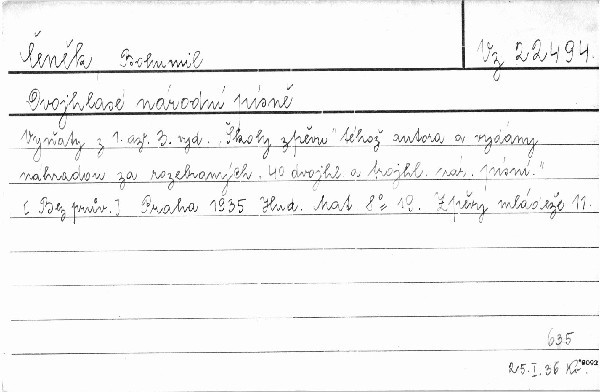 Čeněk Bohumil Vz 22494.
Dvojhlasé národní písně
Vyňaty z 1. až 3. vyd. „Školy zpěvu" téhož autora a vydány
nahradou za rozebraných „40 dvojhl. a trojhl. nár. písní."
[Bez prův.] Praha 1935 Hud. Mat 8° 19. Zpěvy mládeže 11.
635
25.I.36 Kv.